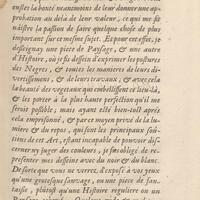 eustes la bonté neantmoins de leur donner une ap-
probation au delà de leur valeur, ce qui me fit
naistre la passion de faire quelque chose de plus
important sur ce mesme sujet. Et pour cet effet, je
desseignay une piece de Paysage, & une autre
d'Histoire, où je fis dessein d'exprimer les postures
des Negres, & toutes les manieres de leurs di-
vertissemens, & de leurs travaux; & avec cela
la beauté des vegetaux qui embellissent ce lieu-là,
& les porter à la plus haute perfection qu'il me
seroit possible; mais ayant esté bien-tost après
cela emprisonné, & par ce moyen privé de la lu-
miere & du repos, qui sont les principaux soû-
tiens de cet Art, estant incapable de pouvoir dis-
cerner ny juger des couleurs, je fus obligé de re-
presenter mes desseins avec du noir & du blanc.
De sorte que vous ne verrez, exposé à vos yeux
qu'une grotesque sauvage, au
taisie, plûtost qu'une Histoire reguliere ou un